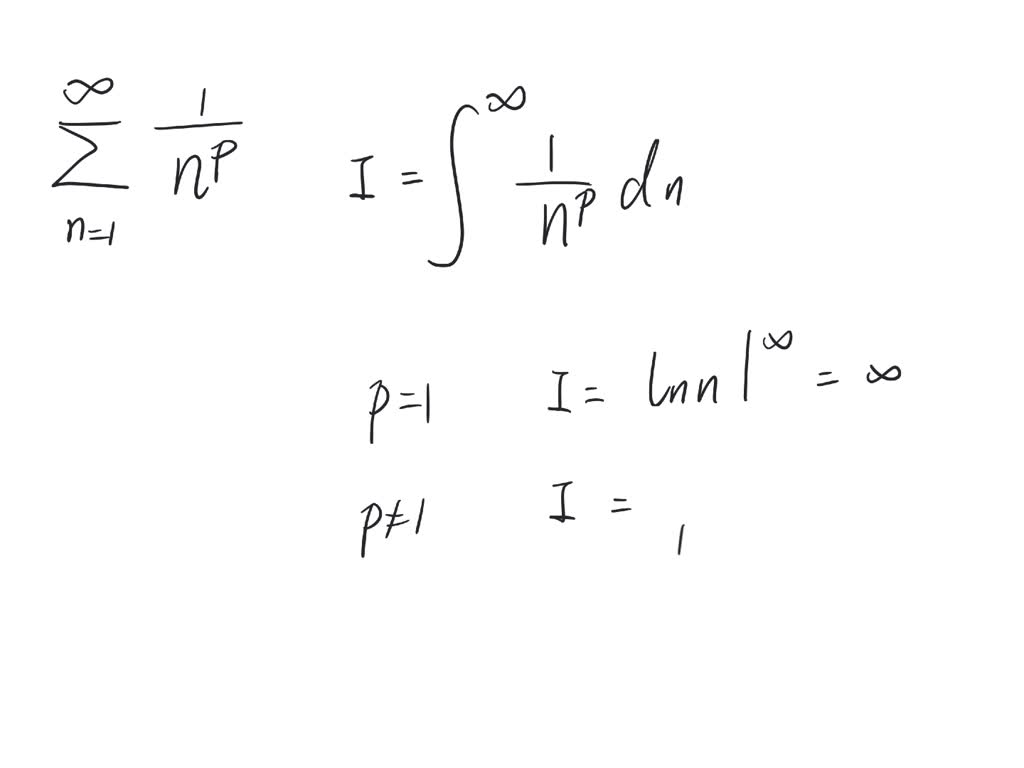 ∞
∑ 1/n^p I = ∫^∞ 1/n^p dn
n=1
p=1 I = ln n |^∞ = ∞
p≠1 I = 1